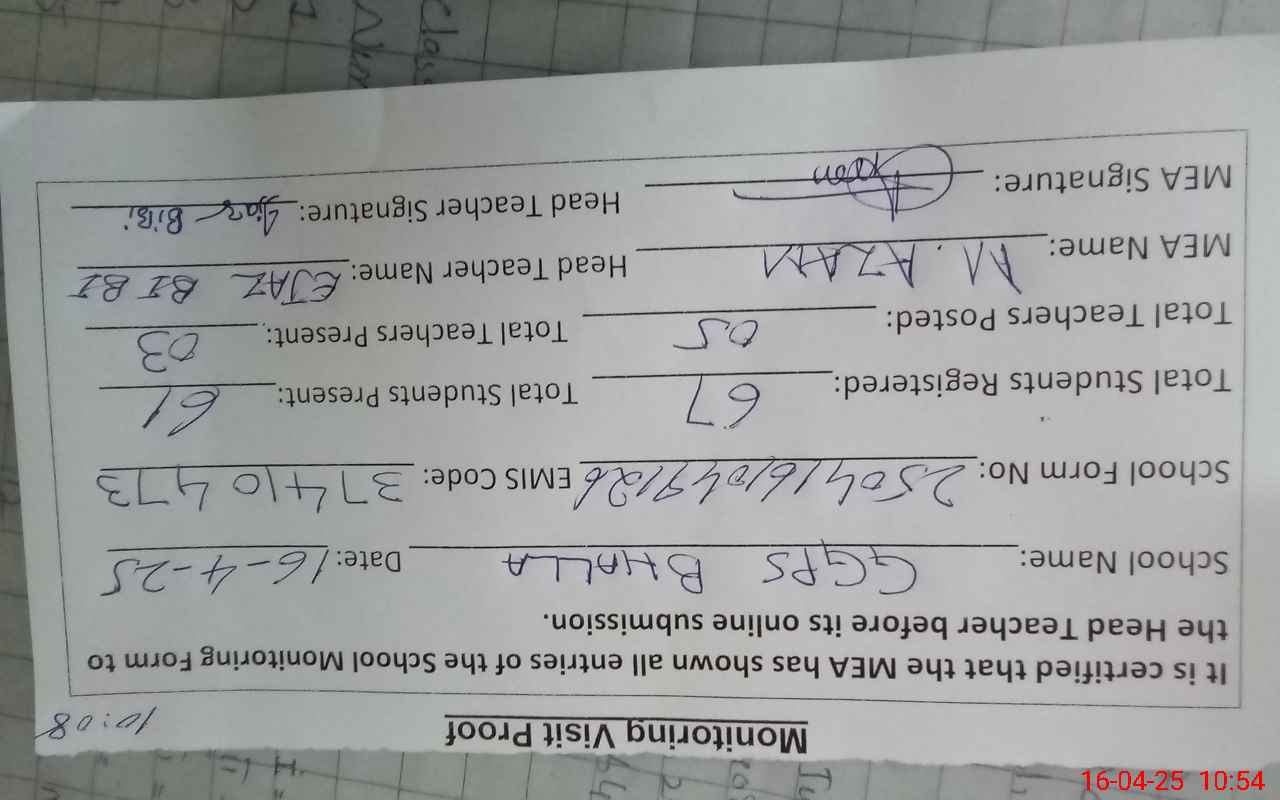 Monitoring Visit Proof
10:08
It is certified that the MEA has shown all entries of the School Monitoring Form to
the Head Teacher before its online submission.
School Name: GGPS BHALLA Date: 16-4-25
School Form No: EMIS Code: 37410473
Total Students Registered: 67 Total Students Present: 61
Total Teachers Posted: 05 Total Teachers Present: 03
MEA Name: M. AZAM Head Teacher Name: EJAZ BI BI
MEA Signature: Head Teacher Signature: Ejaz Bibi
16-04-25 10:54